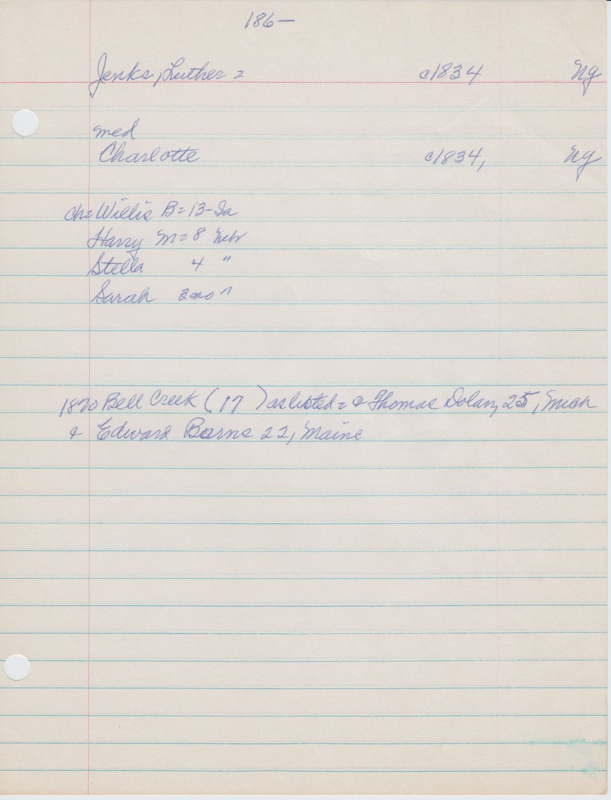 186—
Jenks, Luther = c1834 Ny
med
Charlotte c1834, Ny
ch= Willis B= 13-Ia
Harry M= 8 Nebr
Stella 4 "
Sarah 2mo "
1870 Bell Creek (17) as listed = & Thomas Dolan, 25, Mich
& Edward Barns 22, Maine